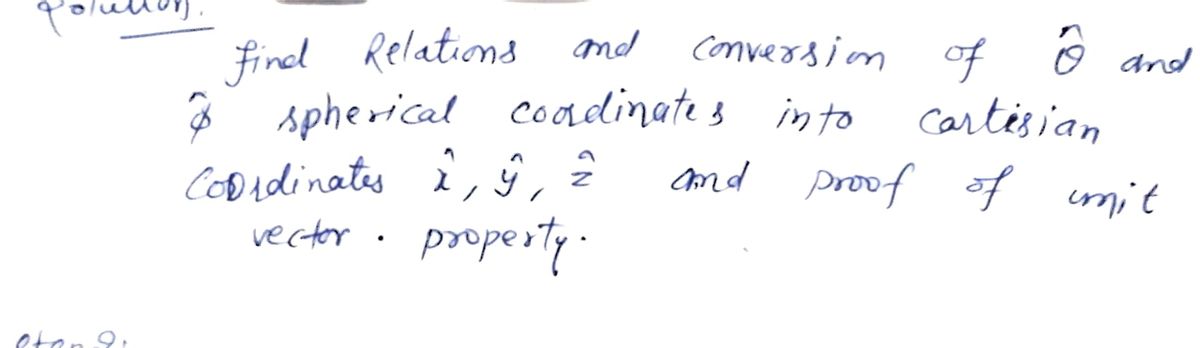 Solution.
find Relations and conversion of θ̂ and
φ̂ spherical coordinates into cartisian
Coordinates x̂, ŷ, ẑ and proof of unit
vector. property.